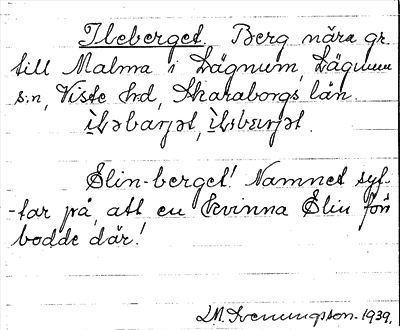 Ileberget. Berg nära gr.
till Malma i Lägnum, Lägnum
s:n, Viste hd, Skaraborgs län.
ìləbarjət, ìlıbærjət.
Elin-berget! Namnet syf-
-tar på, att en kvinna Elin förr
bodde där!
L.M. Svenungsson. 1939.